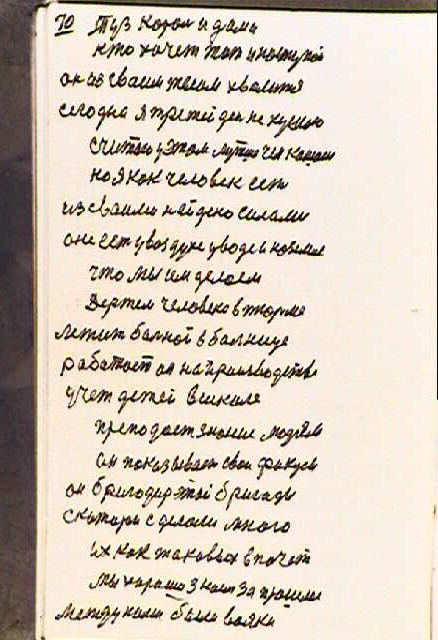 70 Туз король и дама
кто хочет тот и наступай
он со своим телом хвалится
сегодня я третей ден не кушаю
считаю у этом лутше чем кошаю
но я как человек ест
из своими найдено силами
они ест у воздухе у воде и на земле
что мы им делаем
Вертем человека в тюрме
Лежит балной в балнице
работает он на производстве
учет детей в школе
преподает знание людям
он показывает свои фокусы
он бригадер этой бригады
с которы сделали много
их как таковых в почет
мы харашо знаем за прошли
между нами были вояки